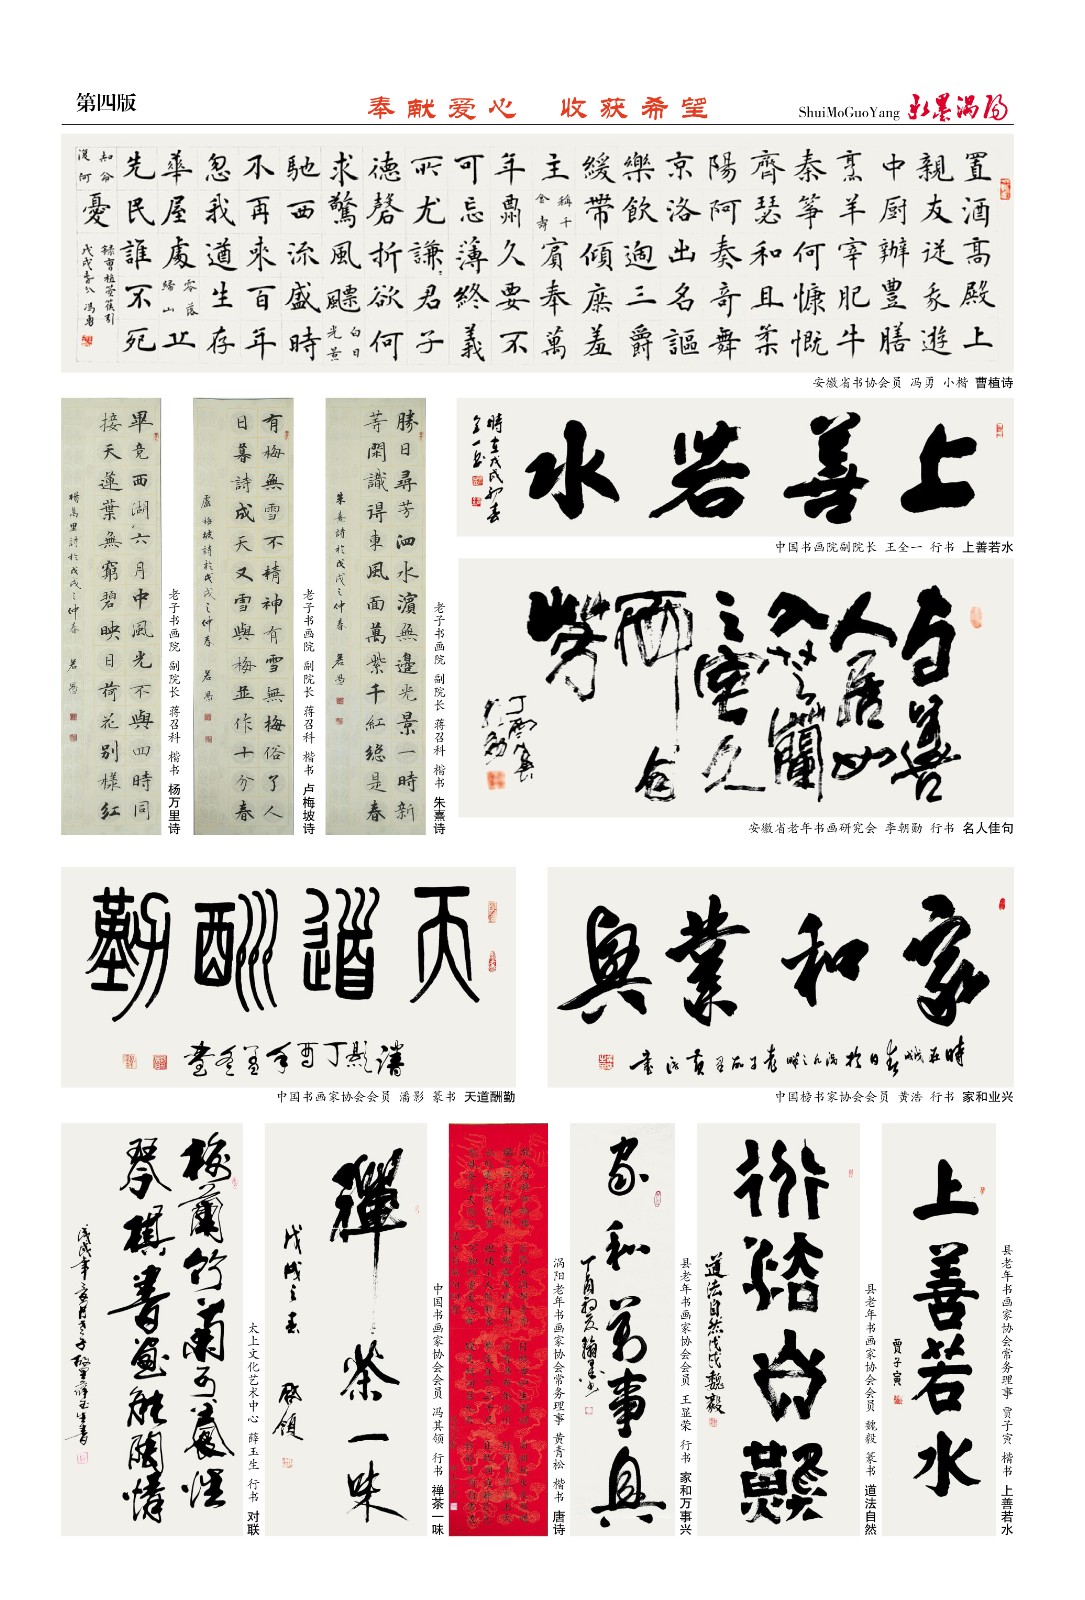 第四版
奉献爱心 收获希望
ShuiMoGuoYang
水墨涡阳
置酒高殿上
親友從我遊
中廚辦豊膳
烹羊宰肥牛
秦筝何慷慨
齊瑟和且柔
陽阿奏奇舞
京洛出名謳
樂飲過三爵
緩帶傾庶羞
主稱千金壽
賓奉萬年
久要不可忘
薄終義所尤
謙謙君子德
磬折欲何求
驚風飄白日
光景馳西流
盛時不再來
百年忽我遒
生存華屋處
零落歸山丘
先民誰不死
知命復何憂
録曹植箜篌引
戊戌春分 冯勇
安徽省书协会员 冯勇 小楷 曹植诗
畢竟西湖六月中風光不與四時同
接天蓮葉無窮碧映日荷花別樣紅
楊萬里詩於戊戌之仲春 君馬
老子书画院 副院长 蒋召科 楷书 杨万里诗
有梅無雪不精神有雪無梅俗了人
日暮詩成天又雪與梅並作十分春
盧梅坡詩於戊戌之仲春
老子书画院 副院长 蒋召科 楷书 卢梅坡诗
勝日尋芳泗水濱無邊光景一時新
等閑識得東風面萬紫千紅總是春
朱熹詩於戊戌之仲春
老子书画院 副院长 蒋召科 楷书 朱熹诗
上善若水
時在戊戌初春
中国书画院副院长 王全一 行书 上善若水
与善人居如入芝蘭之室久而自芳
安徽省老年书画研究会 李朝勋 行书 名人佳句
天道酬勤
中国书画家协会会员 潘影 篆书 天道酬勤
家和業興
中国榜书家协会会员 黄浩 行书 家和业兴
梅蘭竹菊可養性
琴棋書画能陶情
太上文化艺术中心 薛玉生 行书 对联
禪茶一味
戊戌之春
中国书画家协会会员 冯其领 行书 禅茶一味
涡阳老年书画家协会常务理事 黄青松 楷书 唐诗
家和萬事興
县老年书画家协会会员 王显荣 行书 家和万事兴
道法自然
道法自然戊戌魏毅
县老年书画家协会会员 魏毅 篆书 道法自然
上善若水
賈子寅
县老年书画家协会常务理事 贾子寅 楷书 上善若水